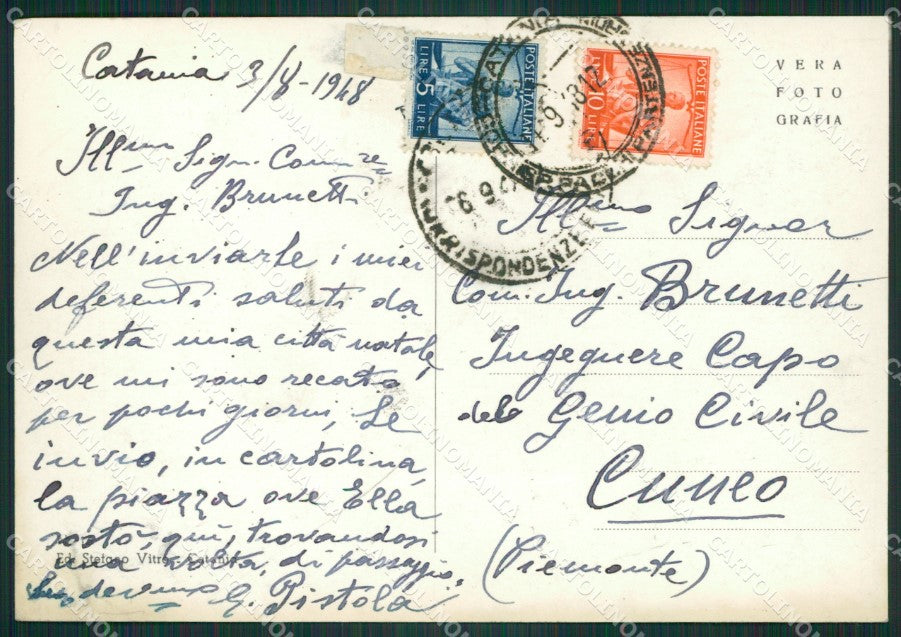 Catania 3/8-1948
Ill.mo Sign. Comm.re
Ing. Brunetti
Nell'inviarle i miei
deferenti saluti da
questa mia città natale,
ove mi sono recato
per pochi giorni, Le
invio, in cartolina,
la piazza ove Ella
sostò, qui, trovandosi
una volta, di passaggio.
dev.mo G. Pistola
Ed. Stefano Vitro - Catania
POSTE ITALIANE
LIRE 5 LIRE
POSTE ITALIANE
10 LIRE
CORRISPONDENZE
VERA
FOTO
GRAFIA
Ill.mo Signor
Com. Ing. Brunetti
Ingegnere Capo
del Genio Civile
Cuneo
(Piemonte)
CARTOLINOMANTA